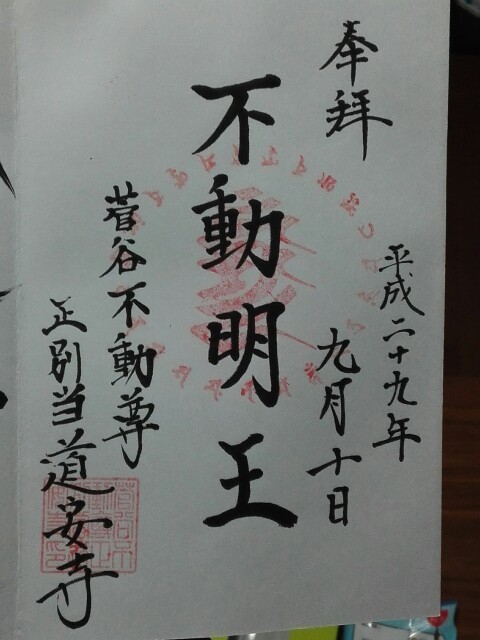 奉拝
平成二十九年
九月十日
不動明王
菅谷不動尊
正別当道安寺